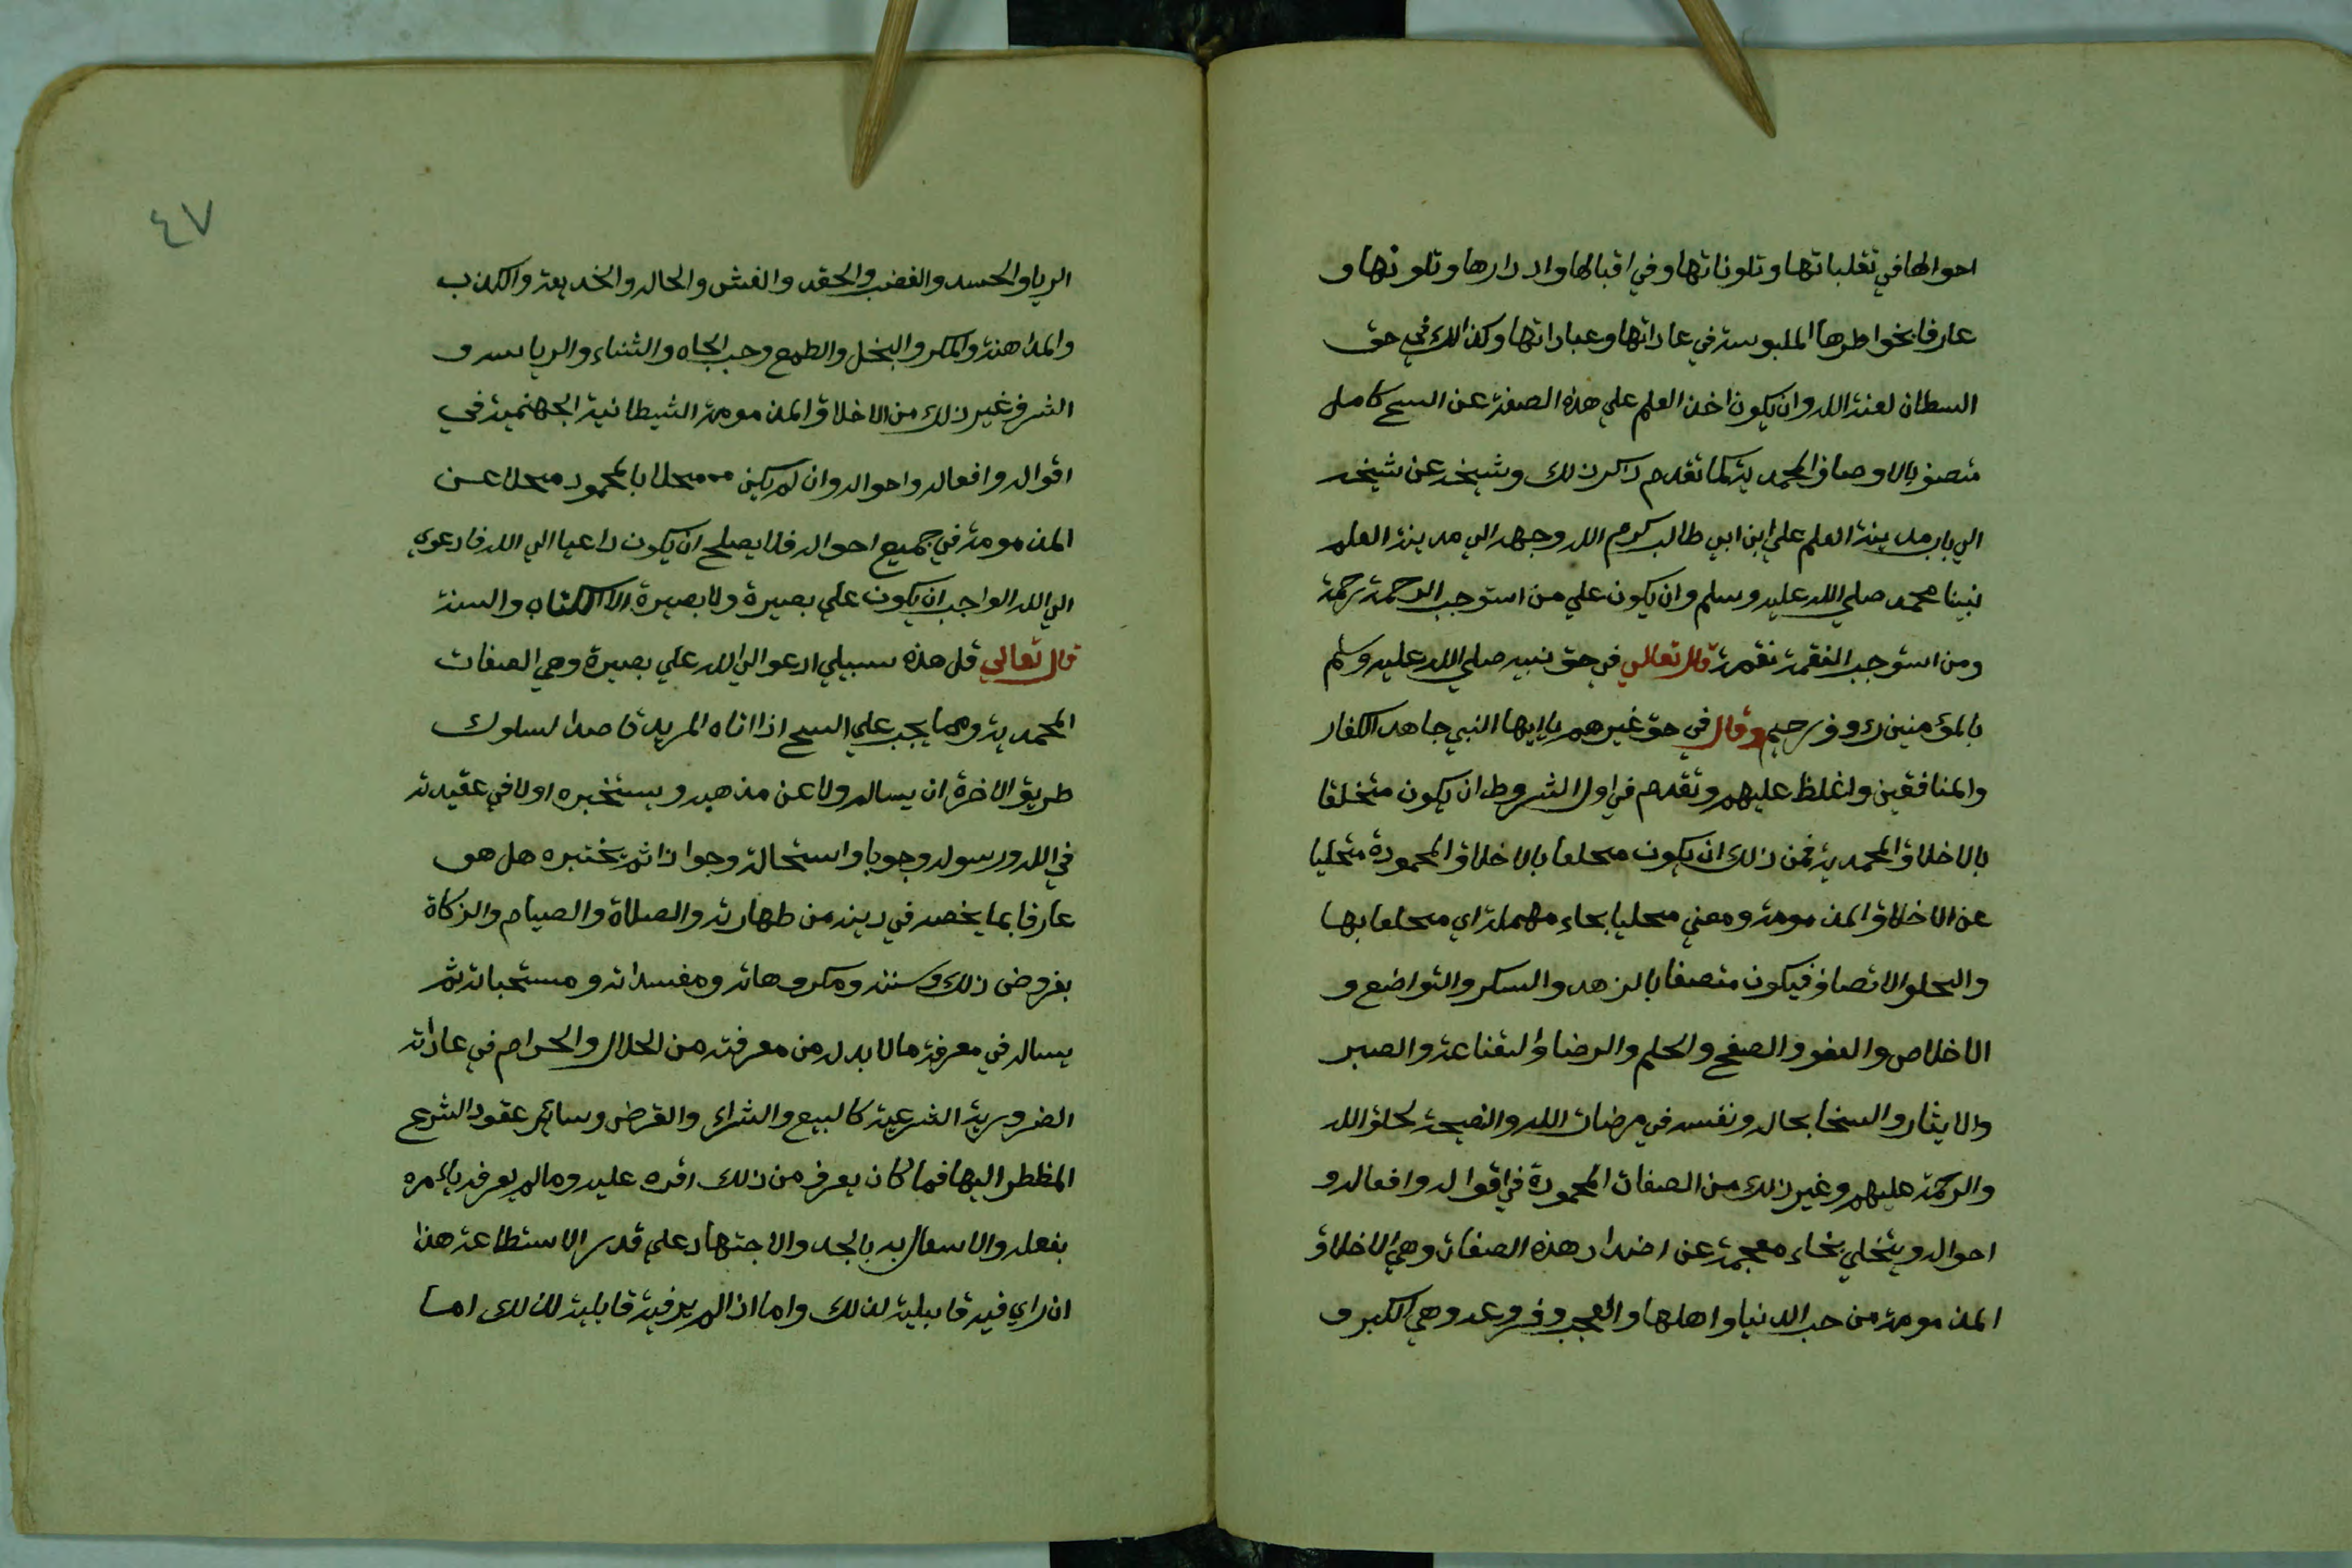 احوالها في تقلباتها وتلوناتها وفي اقبالها وادبارها وتلونها و
عارفا بخواطرها الملبوسة في عاداتها وعباداتها وكذالك في حق
السطان لعنة الله وان يكون اخذ العلم علي هذه الصفة عن السح كامل
متصف بالاوصاف المحمدية كما تقدم ذاكر ذلك وشيخه عن شيخه
الي باب مدينة العلم علي ابن ابي طالب كرم الله وجهه الي مدينة العلم
نبينا محمد صلي الله عليه وسلم وان يكون علي من استوجب الرحمة رحمة
ومن استوجب النقمة نقمة قال تعالي في حق نبيه صلي الله عليه وسلم
بالمؤمنين رءوف رحيم وقال في حق غيرهم ياايها النبي جاهد الكفار
والمنافقين واغلظ عليهم وتقدم في اول الشروط ان يكون متخلقا
بالاخلاق المحمدية فمن ذلك ان يكون محلعا بالاخلاق المحمودة متحليا
عن الاخلاق المذمومة ومعني محليا بحاء مهملة اي محلعا بها
والحلو الاتصاف فيكون متصفا بالزهد والسكر والتواضع و
الاخلاص والعفو والصفح والحلم والرضا والقناعة والصبر
والايثار والسخا بحاله ونفسه في مرضات الله والنصيحة لخلق الله
والرحمة عليهم وغير ذلك من الصفات المحمودة في اقواله وافعاله و
احواله ويتخلي بخاء معجمة عن اضداد هذه الصفات وهي الاخلاق
المذمومة من حب الدنيا واهلها والعجب وفروعه وهي الكبر و
٤٧
الريا والحسد والغضب والحقد والغش والحال والخديعة والكذب
والمداهنة والمكر والبخل والطمع وحب الجاه والثناء والرياسة و
الشرف غير ذلك من الاخلاق المذمومة الشيطانية الجهنمية في
اقواله وافعاله واحواله وان لم يكن محلا بالمحمود محلا عن
المذمومة في جميع احواله فلا يصلح ان يكون داعيا الي الله فادعوي
الي الله الواجب ان يكون علي بصيرة ولا بصيرة الا الكتاب والسنة
قال تعالي قل هذه سبيلي ادعوا الي الله علي بصيرة وهي الصفات
المحمدية ومما يجب علي السح اذا اتاه المريد قاصدا لسلوك
طريق الاخرة ان يساله ولا عن مذهبه ويستخبره اولا في عقيدته
في الله ورسوله وجوبا واستحالة وجوازا ثم يختبره هل هو
عارفا بما يخصه في دينه من طهارته والصلاة والصيام والزكاة
بفروض ذلك وسننه ومكروهاته ومفسداته ومستحباته ثم
يساله في معرفة ما لا بد له من معرفته من الحلال والحرام في عاداته
الضرورية الشرعية كالبيع والشراء والقرض وسائر عقود الشرع
المظطر اليها فما كان يعرف من ذلك اقره عليه ومالم يعرفه يائمره
بفعله والاسعال به بالجد والاجتهاد علي قدر الاستطاعة هذا
ان راي فيه قابيلية لذلك واما اذا لم ير فيه قابلية لذلك اما